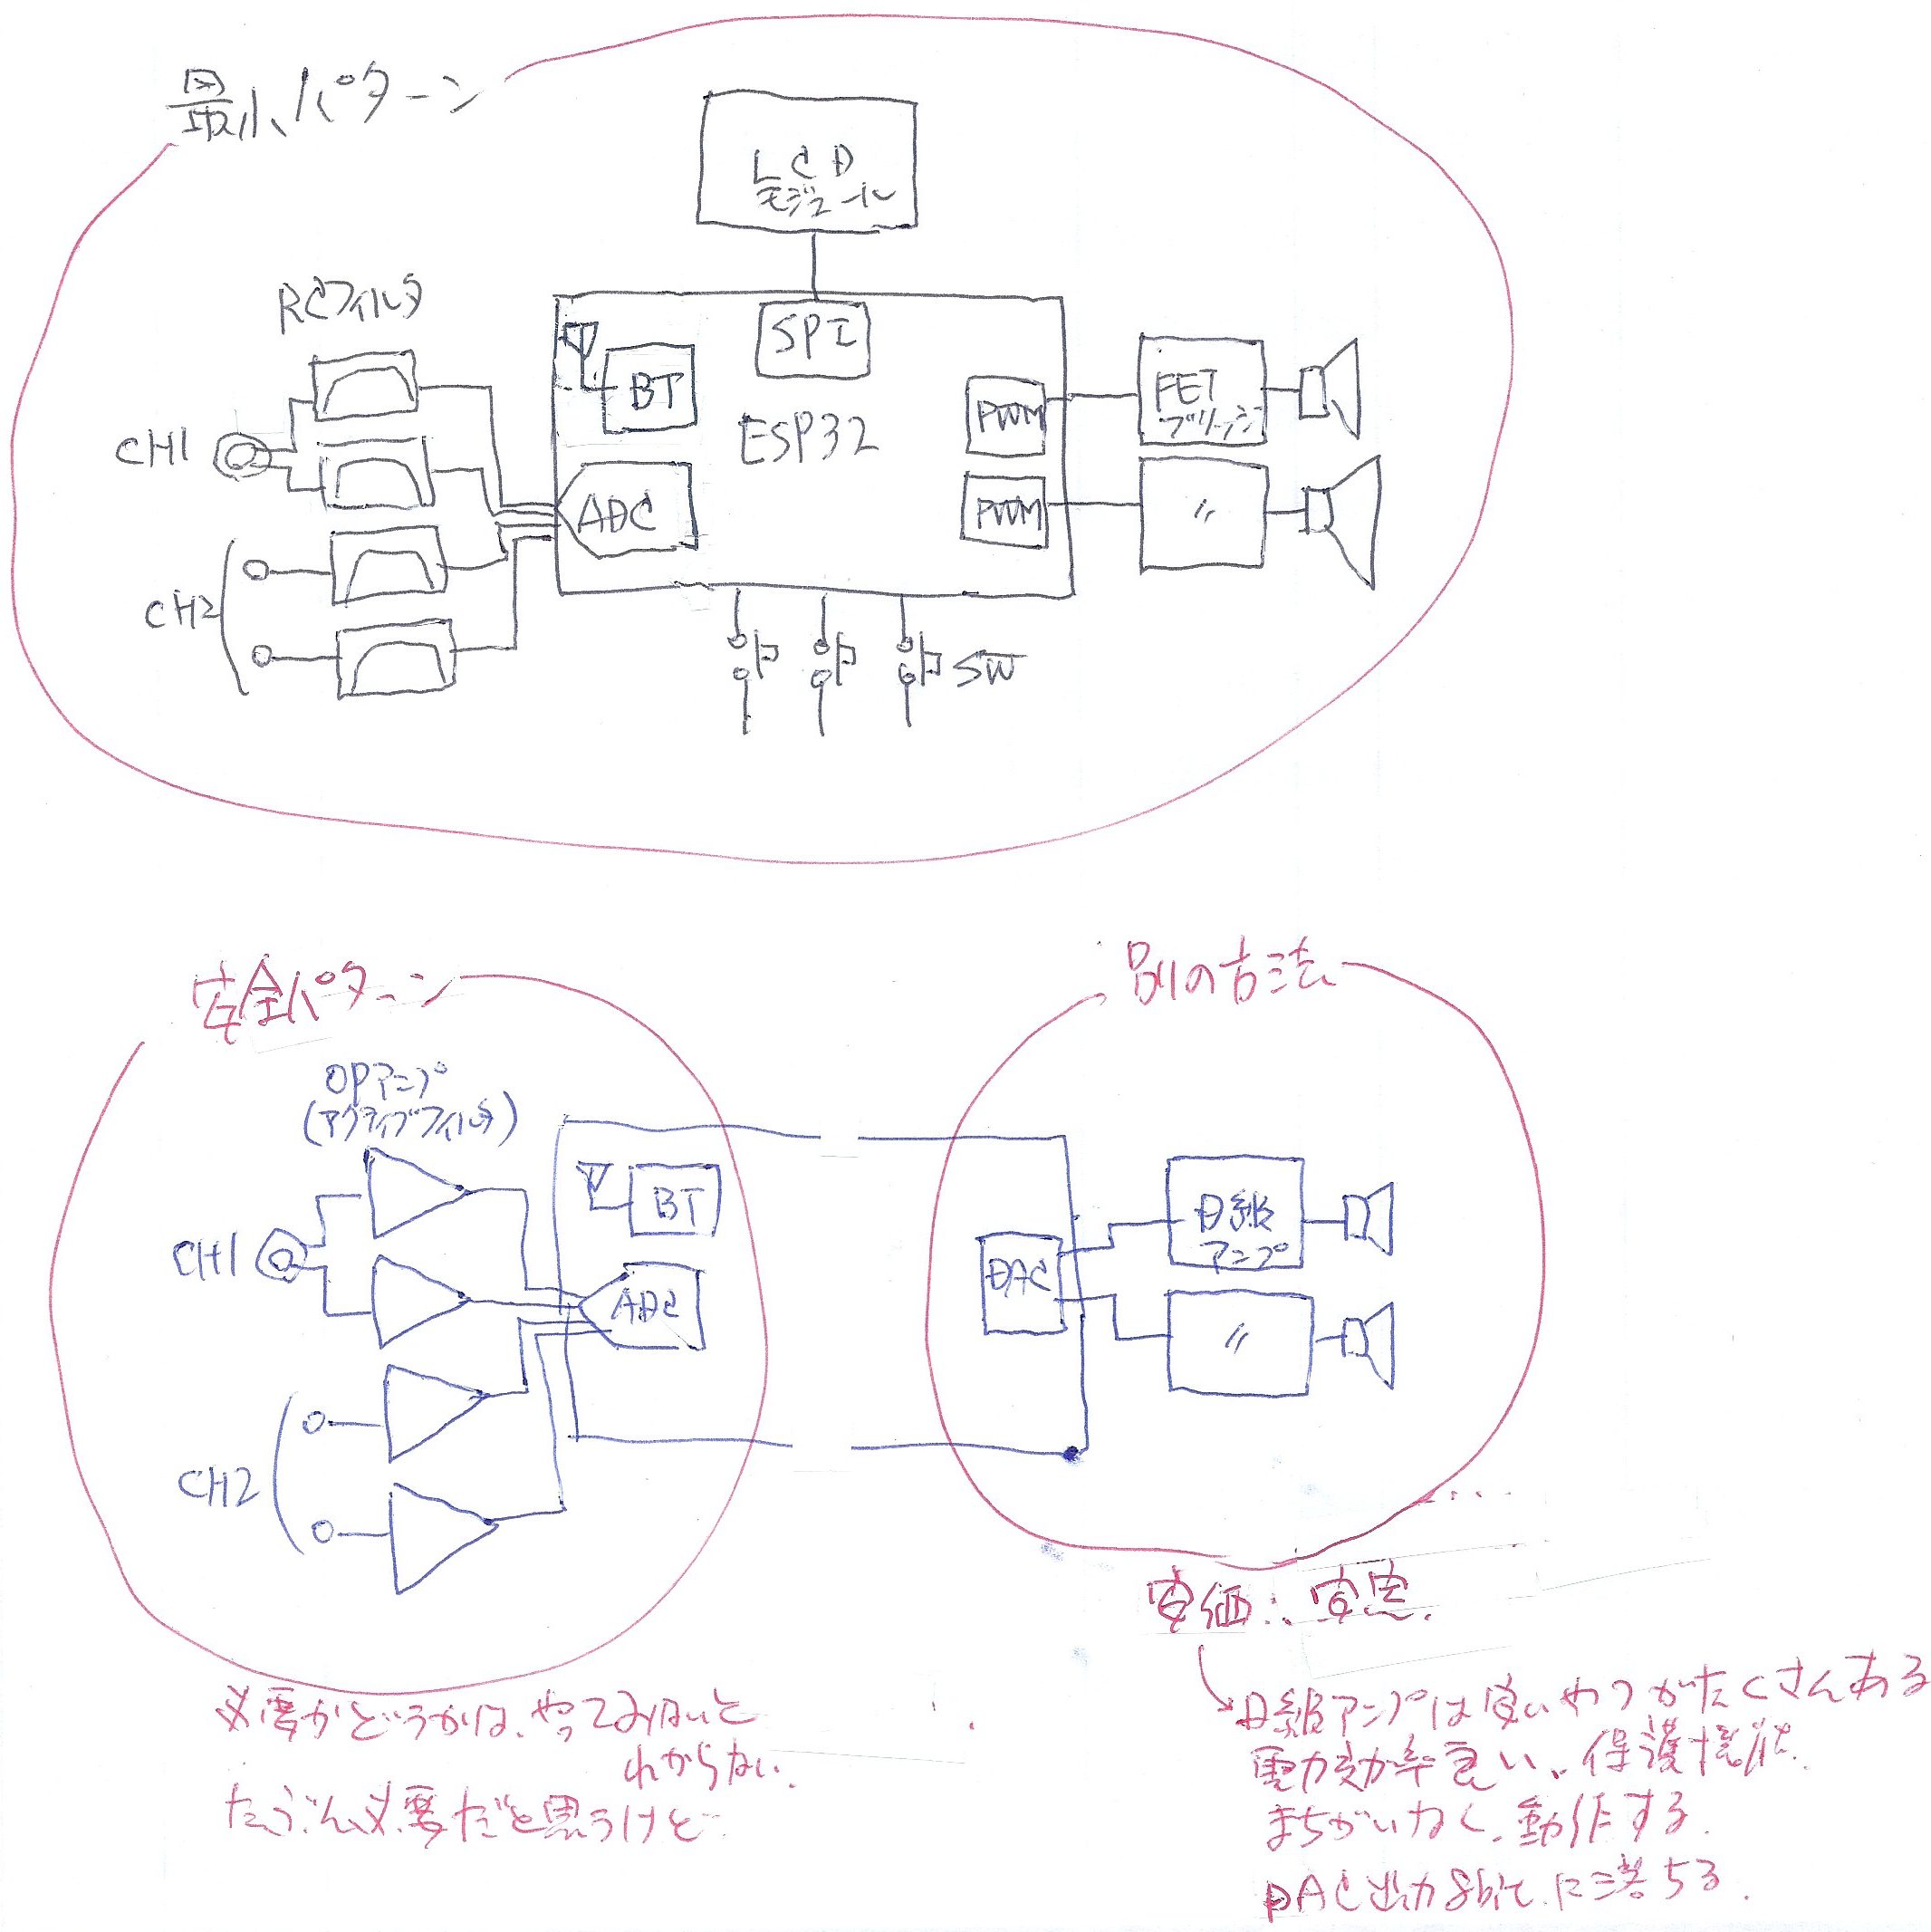 最小パターン
LCD
モジュール
RCフィルタ
SPI
BT
ESP32
CH1
ADC
PWM
FET
ブリッジ
PWM
〃
CH2
SW
安全パターン
別の方法
OPアンプ
(アクティブフィルタ)
BT
CH1
ADC
DAC
D級
アンプ
〃
CH2
安価
必要かどうかは、やってみないと
わからない.
たぶん必要だと思うけど
D級アンプは安いやつがたくさんある
電力効率良い、保護機能.
まちがいなく、動作する.
DAC出力8bitに落ちる.